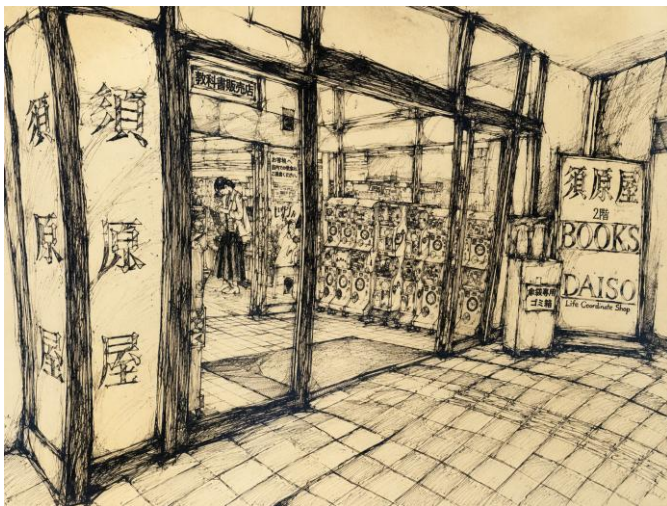 須原屋
須原屋
教科書販売店
お客様へ
須原屋
2階
BOOKS
DAISO
Life Coordinate Shop
傘袋専用
ゴミ箱